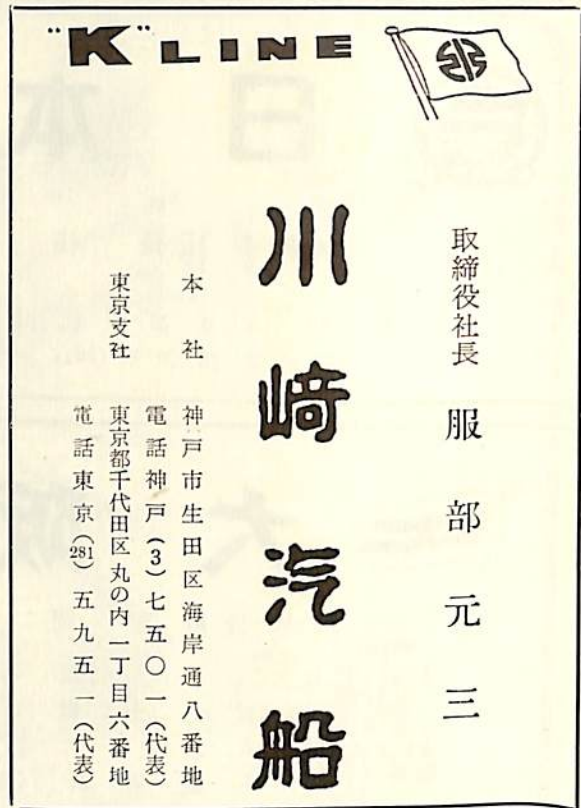 "K" LINE
取締役社長 服部元三
川﨑汽船
本社 神戸市生田区海岸通八番地
電話神戸(3)七五〇一(代表)
東京支社 東京都千代田区丸の内一丁目六番地
電話東京(281)五九五一(代表)